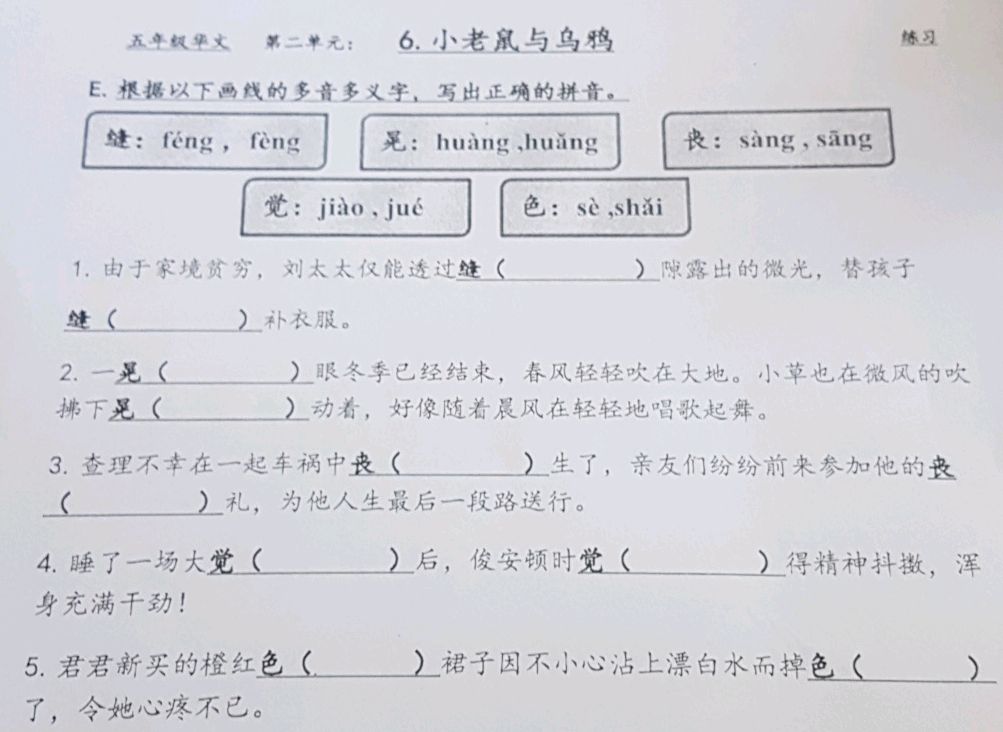 五年级华文 第二单元： 6. 小老鼠与乌鸦 练习
E. 根据以下画线的多音多义字，写出正确的拼音。
缝：féng ，fèng 晃：huàng ,huǎng 丧：sàng , sāng
觉：jiào , jué 色：sè ,shǎi
1. 由于家境贫穷，刘太太仅能透过缝（ ）隙露出的微光，替孩子
缝（ ）补衣服。
2. 一晃（ ）眼冬季已经结束，春风轻轻吹在大地。小草也在微风的吹
拂下晃（ ）动着，好像随着晨风在轻轻地唱歌起舞。
3. 查理不幸在一起车祸中丧（ ）生了，亲友们纷纷前来参加他的丧
（ ）礼，为他人生最后一段路送行。
4. 睡了一场大觉（ ）后，俊安顿时觉（ ）得精神抖擞，浑
身充满干劲！
5. 君君新买的橙红色（ ）裙子因不小心沾上漂白水而掉色（ ）
了，令她心疼不已。